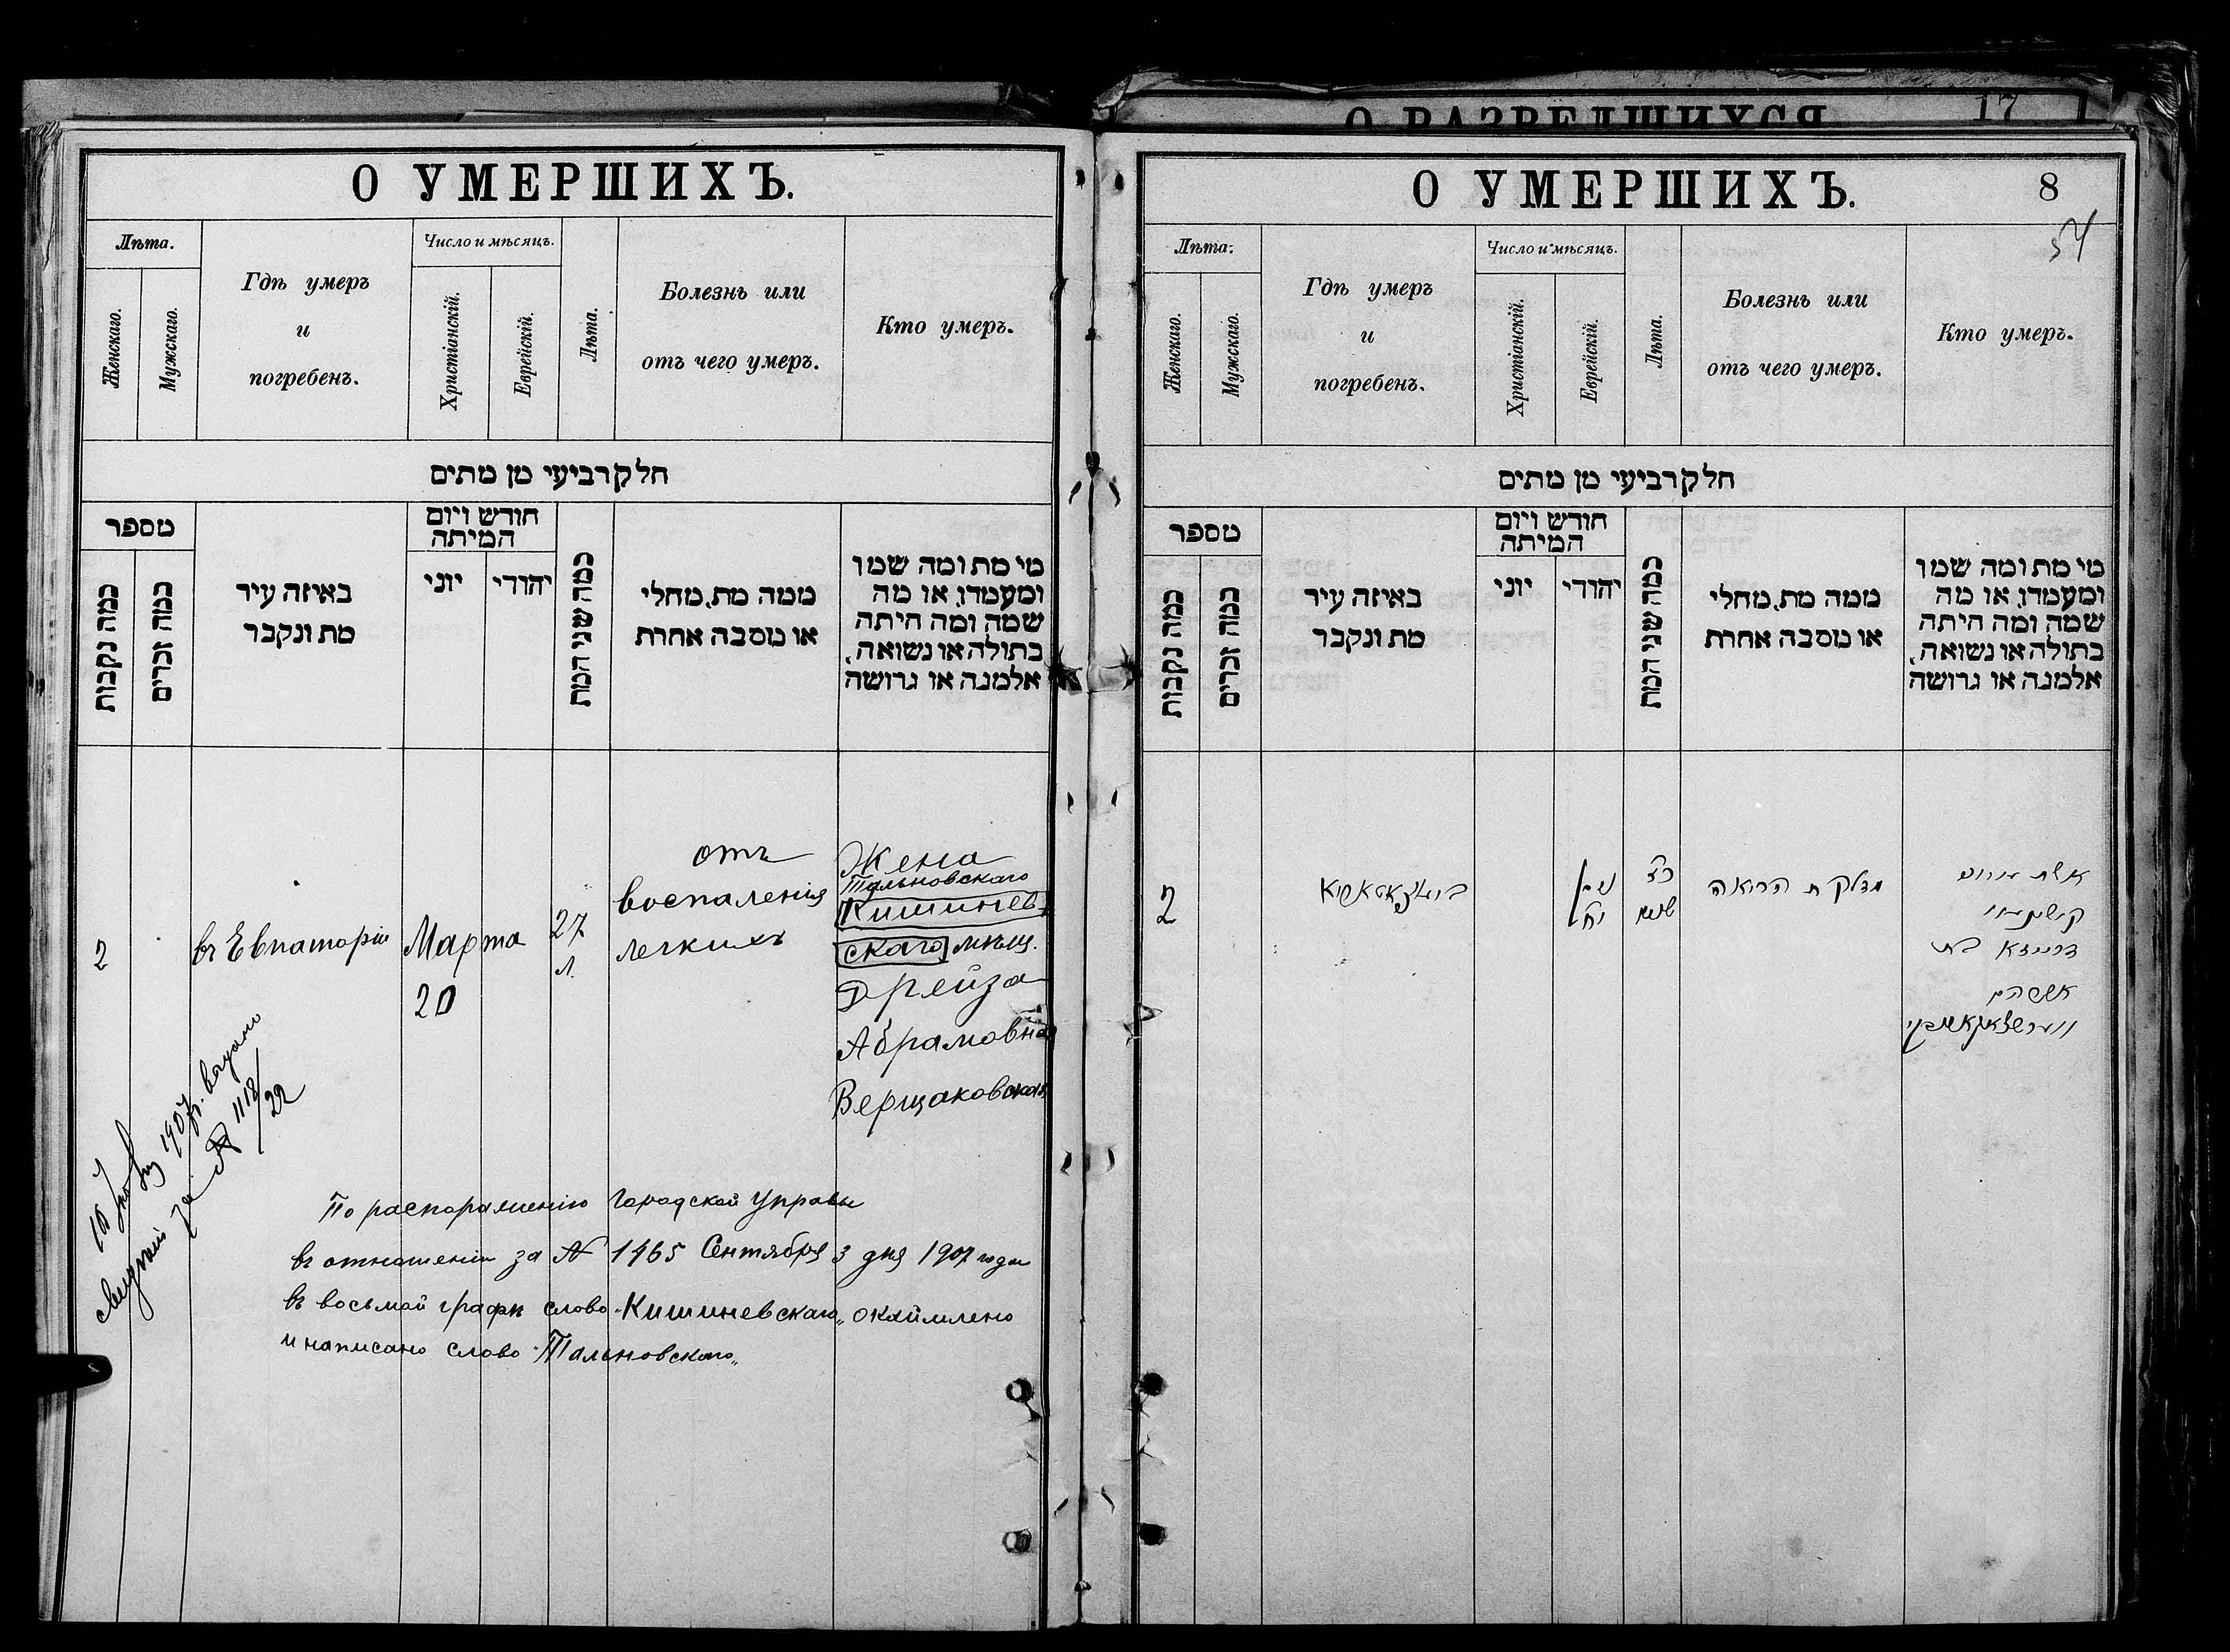 О УМЕРШИХЪ.
Лѣта.
Женскаго.
Мужскаго.
Гдѣ умеръ
и
погребенъ.
Число и мѣсяцъ.
Христіанскій.
Еврейскій.
Лѣта.
Болезнь или
отъ чего умеръ.
Кто умеръ.
חלק רביעי מן מתים
מספר
כמה נקבות
כמה זכרים
באיזה עיר
מת ונקבר
חודש ויום
המיתה
יוני
יהודי
כמה שני המת
ממה מת, מחלי
או מסבה אחרת
מי מת ומה שמו
ומעמדו, או מה
שמה ומה היתה
בתולה או נשואה,
אלמנה או גרושה
2
въ Евпаторіи
Марта
20
27
л.
отъ
воспаленія
легкихъ
Жена
Тальновскаго
Кишинев-
скаго мѣщ.
Дрейза
Абрамовна
Верщаковская
1907 г. выдано
за № 1118/22
По распоряженію Городской Управы
въ отношеніи за № 1465 Сентября 3 дня 1907 года
въ восьмой графѣ слово „Кишиневскаго„ окаймлено
и написано слово „Тальновскаго„
О РАЗВЕДШИХСЯ
17
О УМЕРШИХЪ.
8
54
Лѣта.
Женскаго.
Мужскаго.
Гдѣ умеръ
и
погребенъ.
Число и мѣсяцъ.
Христіанскій.
Еврейскій.
Лѣта.
Болезнь или
отъ чего умеръ.
Кто умеръ.
חלק רביעי מן מתים
מספר
כמה נקבות
כמה זכרים
באיזה עיר
מת ונקבר
חודש ויום
המיתה
יוני
יהודי
כמה שני המת
ממה מת, מחלי
או מסבה אחרת
מי מת ומה שמו
ומעמדו, או מה
שמה ומה היתה
בתולה או נשואה,
אלמנה או גרושה
2
ניסן
כז
שנים
מדלקת הריאה
אשת
דרייזא בת
אברהם